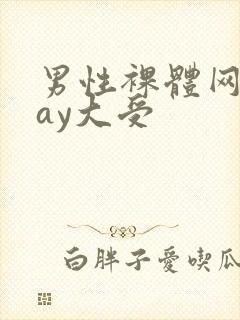 男性裸體网
ay大受
白胖子愛喫瓜